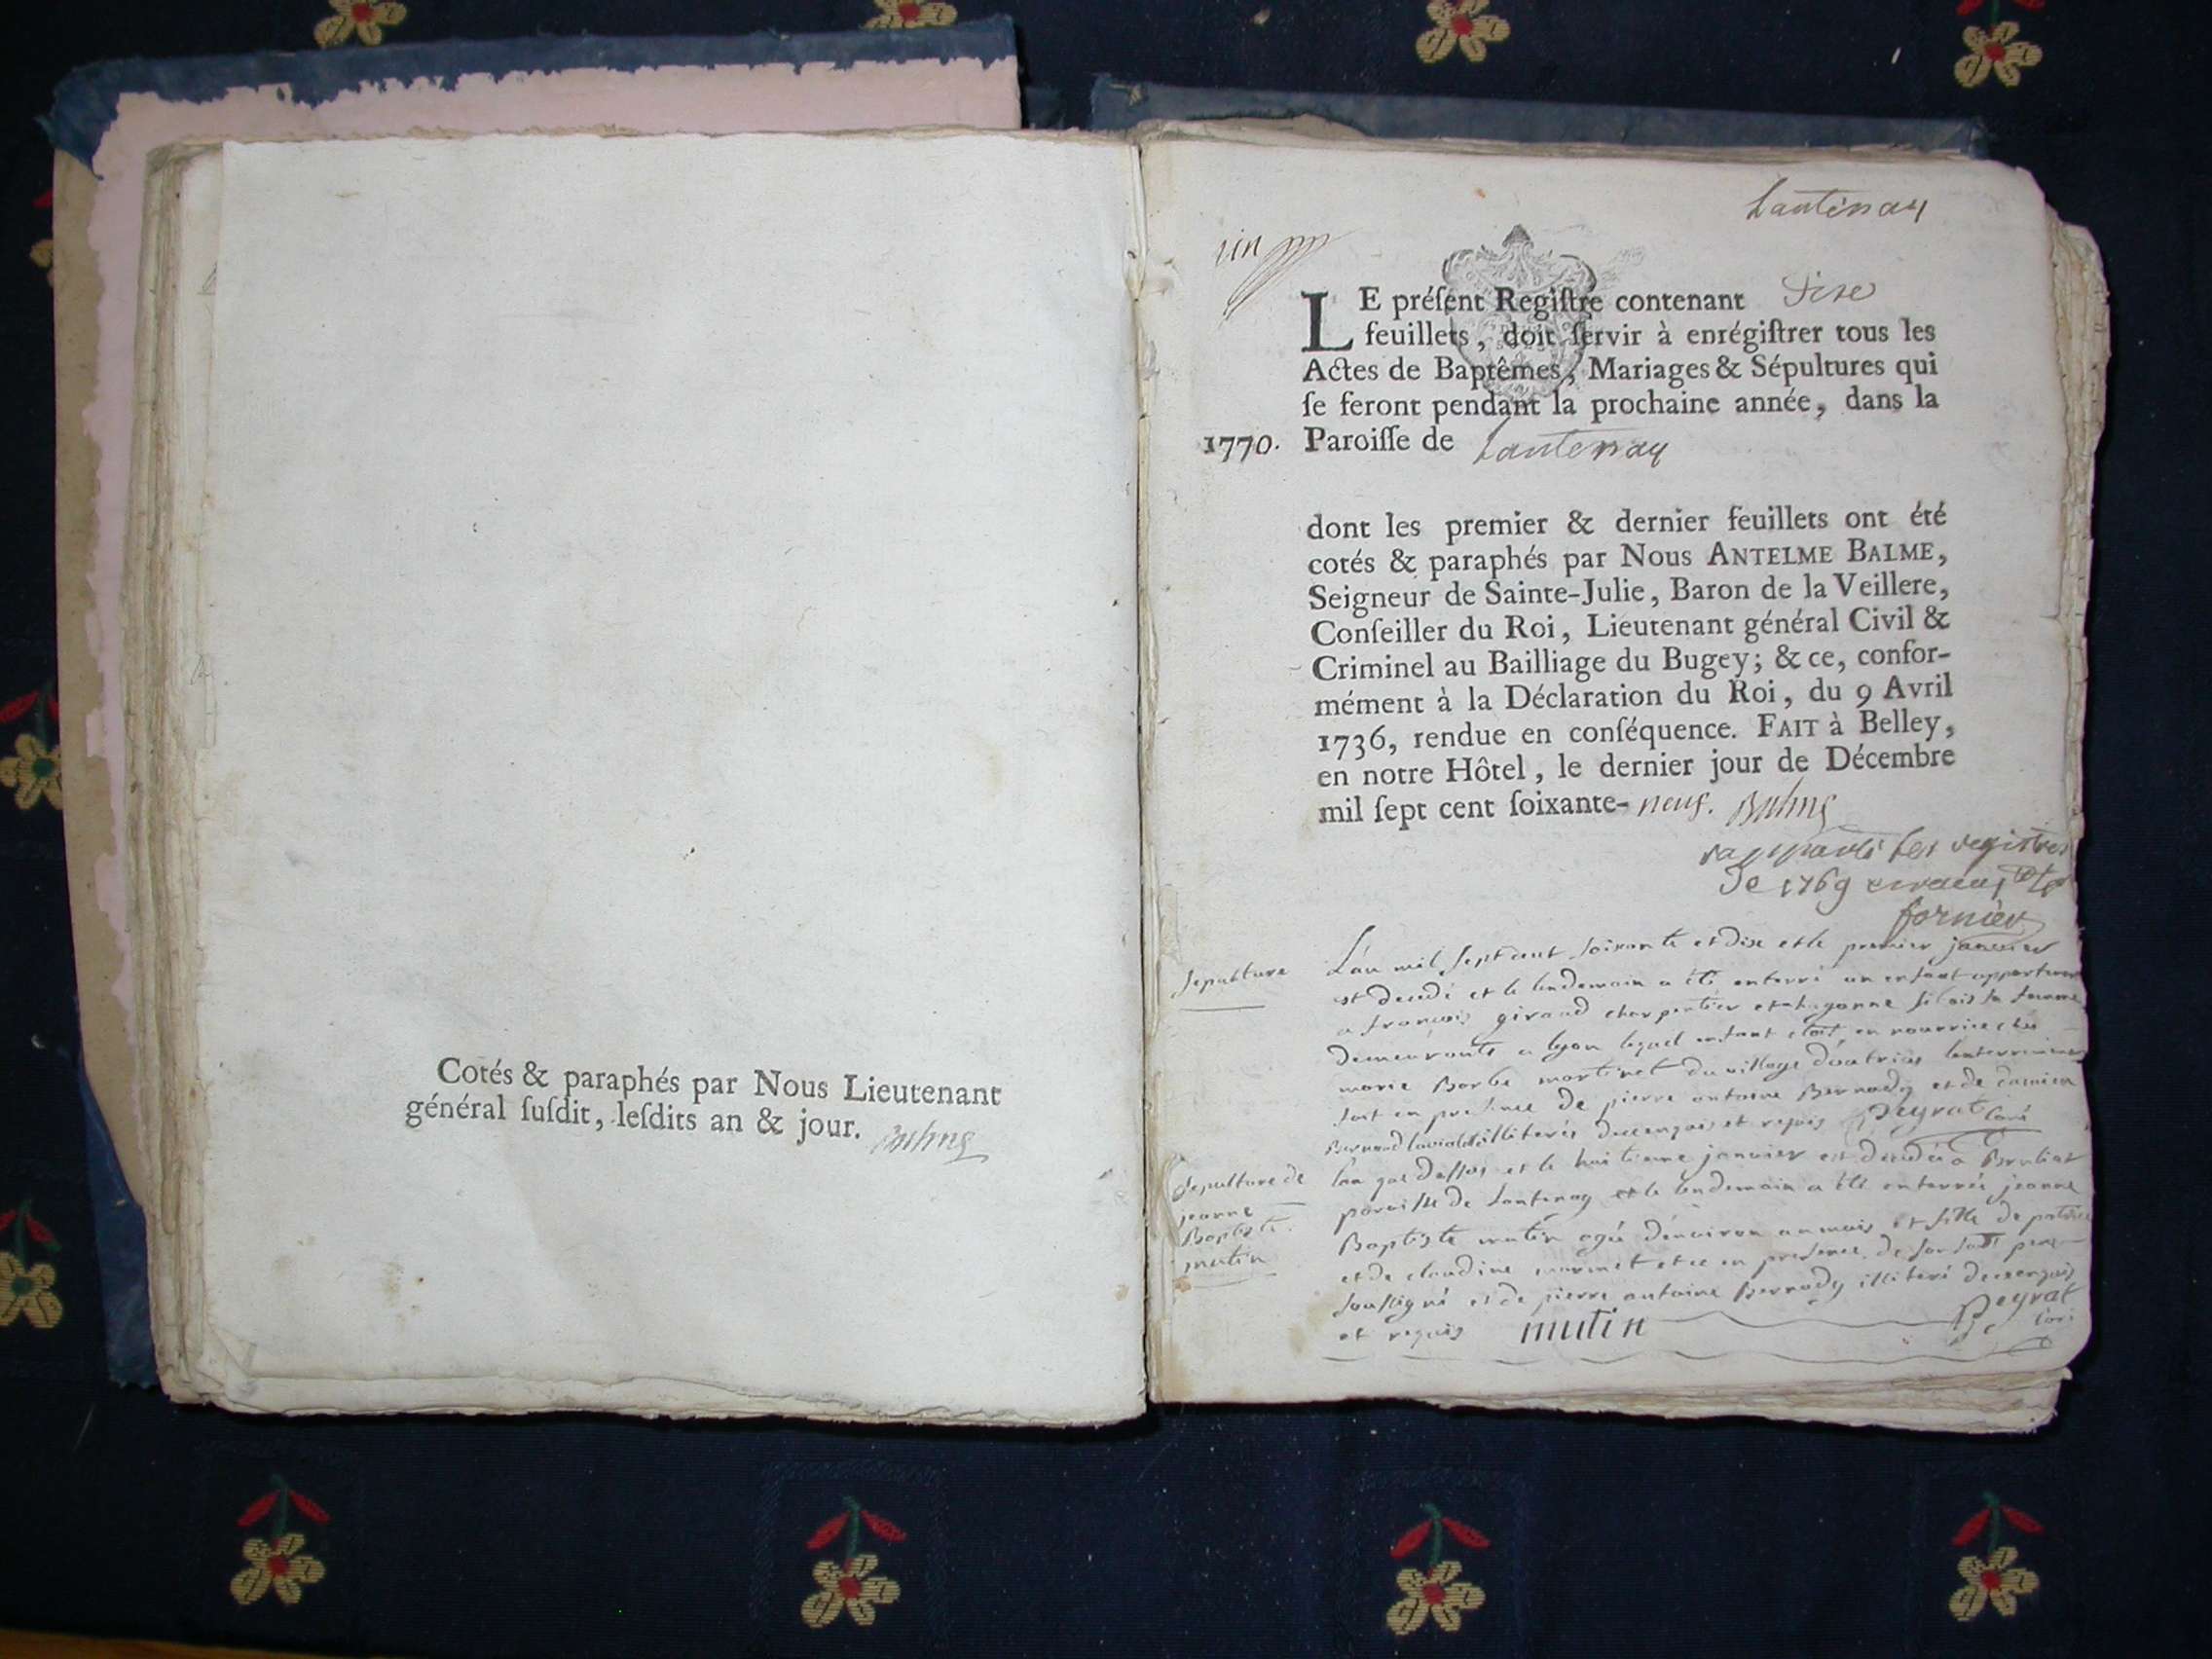 Cotés & paraphés par Nous Lieutenant
général ſuſdit, leſdits an & jour. Balme
Lantenay
un
LE préſent Regiſtre contenant Dixe
feuillets, doit ſervir à enrégiſtrer tous les
Actes de Baptêmes, Mariages & Sépultures qui
ſe feront pendant la prochaine année, dans la
1770. Paroiſſe de Lantenay
dont les premier & dernier feuillets ont été
cotés & paraphés par Nous ANTELME BALME,
Seigneur de Sainte-Julie, Baron de la Veillere,
Conſeiller du Roi, Lieutenant général Civil &
Criminel au Bailliage du Bugey; & ce, confor-
mément à la Déclaration du Roi, du 9 Avril
1736, rendue en conſéquence. FAIT à Belley,
en notre Hôtel, le dernier jour de Décembre
mil ſept cent ſoixante-neuf. Balme
les registres
De 1769
fornier
Sepulture
L'an mil sept cent soixante et dix et le premier janvier
est decedé et le lendemain a été enterré un enfant
a françois giraud charpentier et sa femme
demeurants a lyon lequel enfant etoit en nourrice chés
marie Barbe martinet du village d'outriaz
fait en presence de pierre antoine Bernady et de
Bernard illiterés de ce enquis et requis Peyrat Curé
Sepulture de
jeanne
Baptiste
mutin
l'an que dessus et le huitieme janvier est decedée a
paroisse de Lantenay et le lendemain a été enterrée jeanne
Baptiste mutin agée d'environ un mois et fille de
et de claudine marmet et ce en presence de son pere
soussigné et de pierre antoine Bernady illiteré de ce enquis
et requis mutin Peyrat Curé